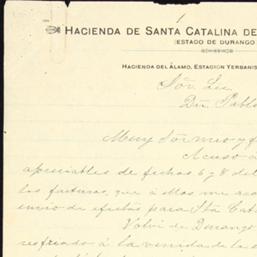 HACIENDA DE SANTA CATALINA DE
(ESTADO DE DURANGO
HACIENDA DEL ÁLAMO, ESTACION YERBANIS
Sõr. Lic.
Dn. Pablo
Muy Sõr mio y
Acuso
apreciables de fechas 6 y 8 de
las facturas, que á ellas me
envio de efectos para Sta Cat
Volví de Durango
resfriado á la venida de la